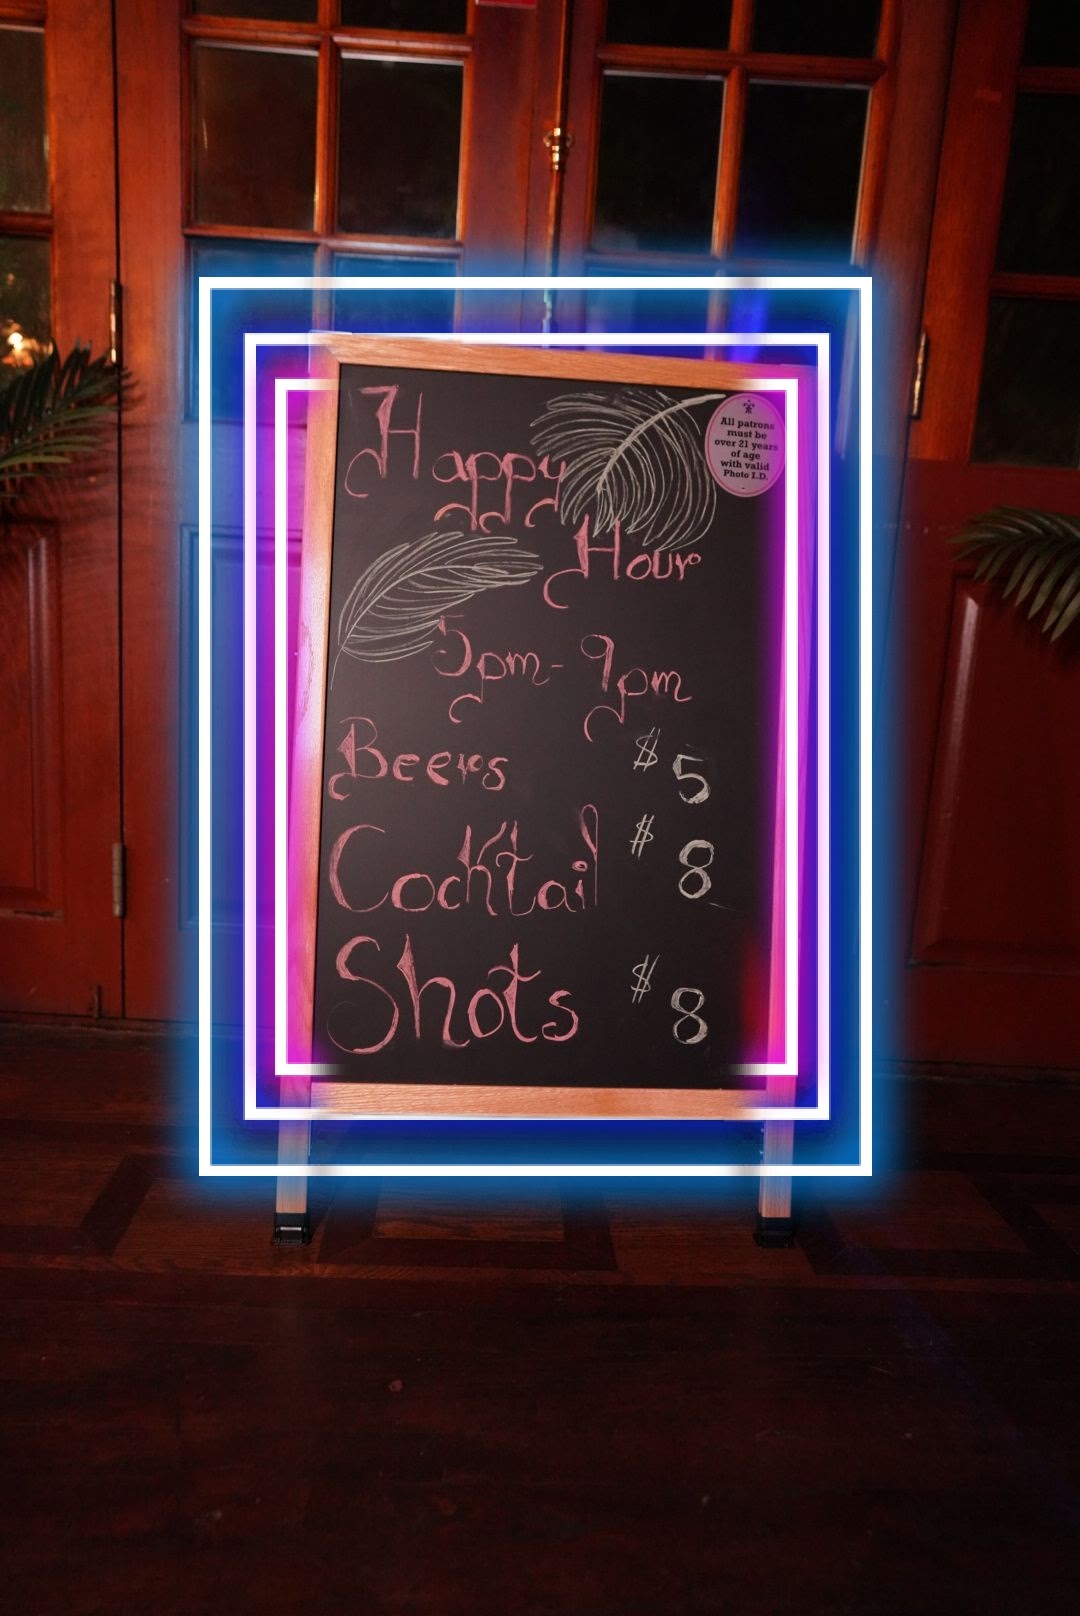 Happy
All patrons
must be
over 21 years
of age
with valid
Photo I.D.
Hour
5pm-9pm
Beers $5
Cocktail $8
Shots $8